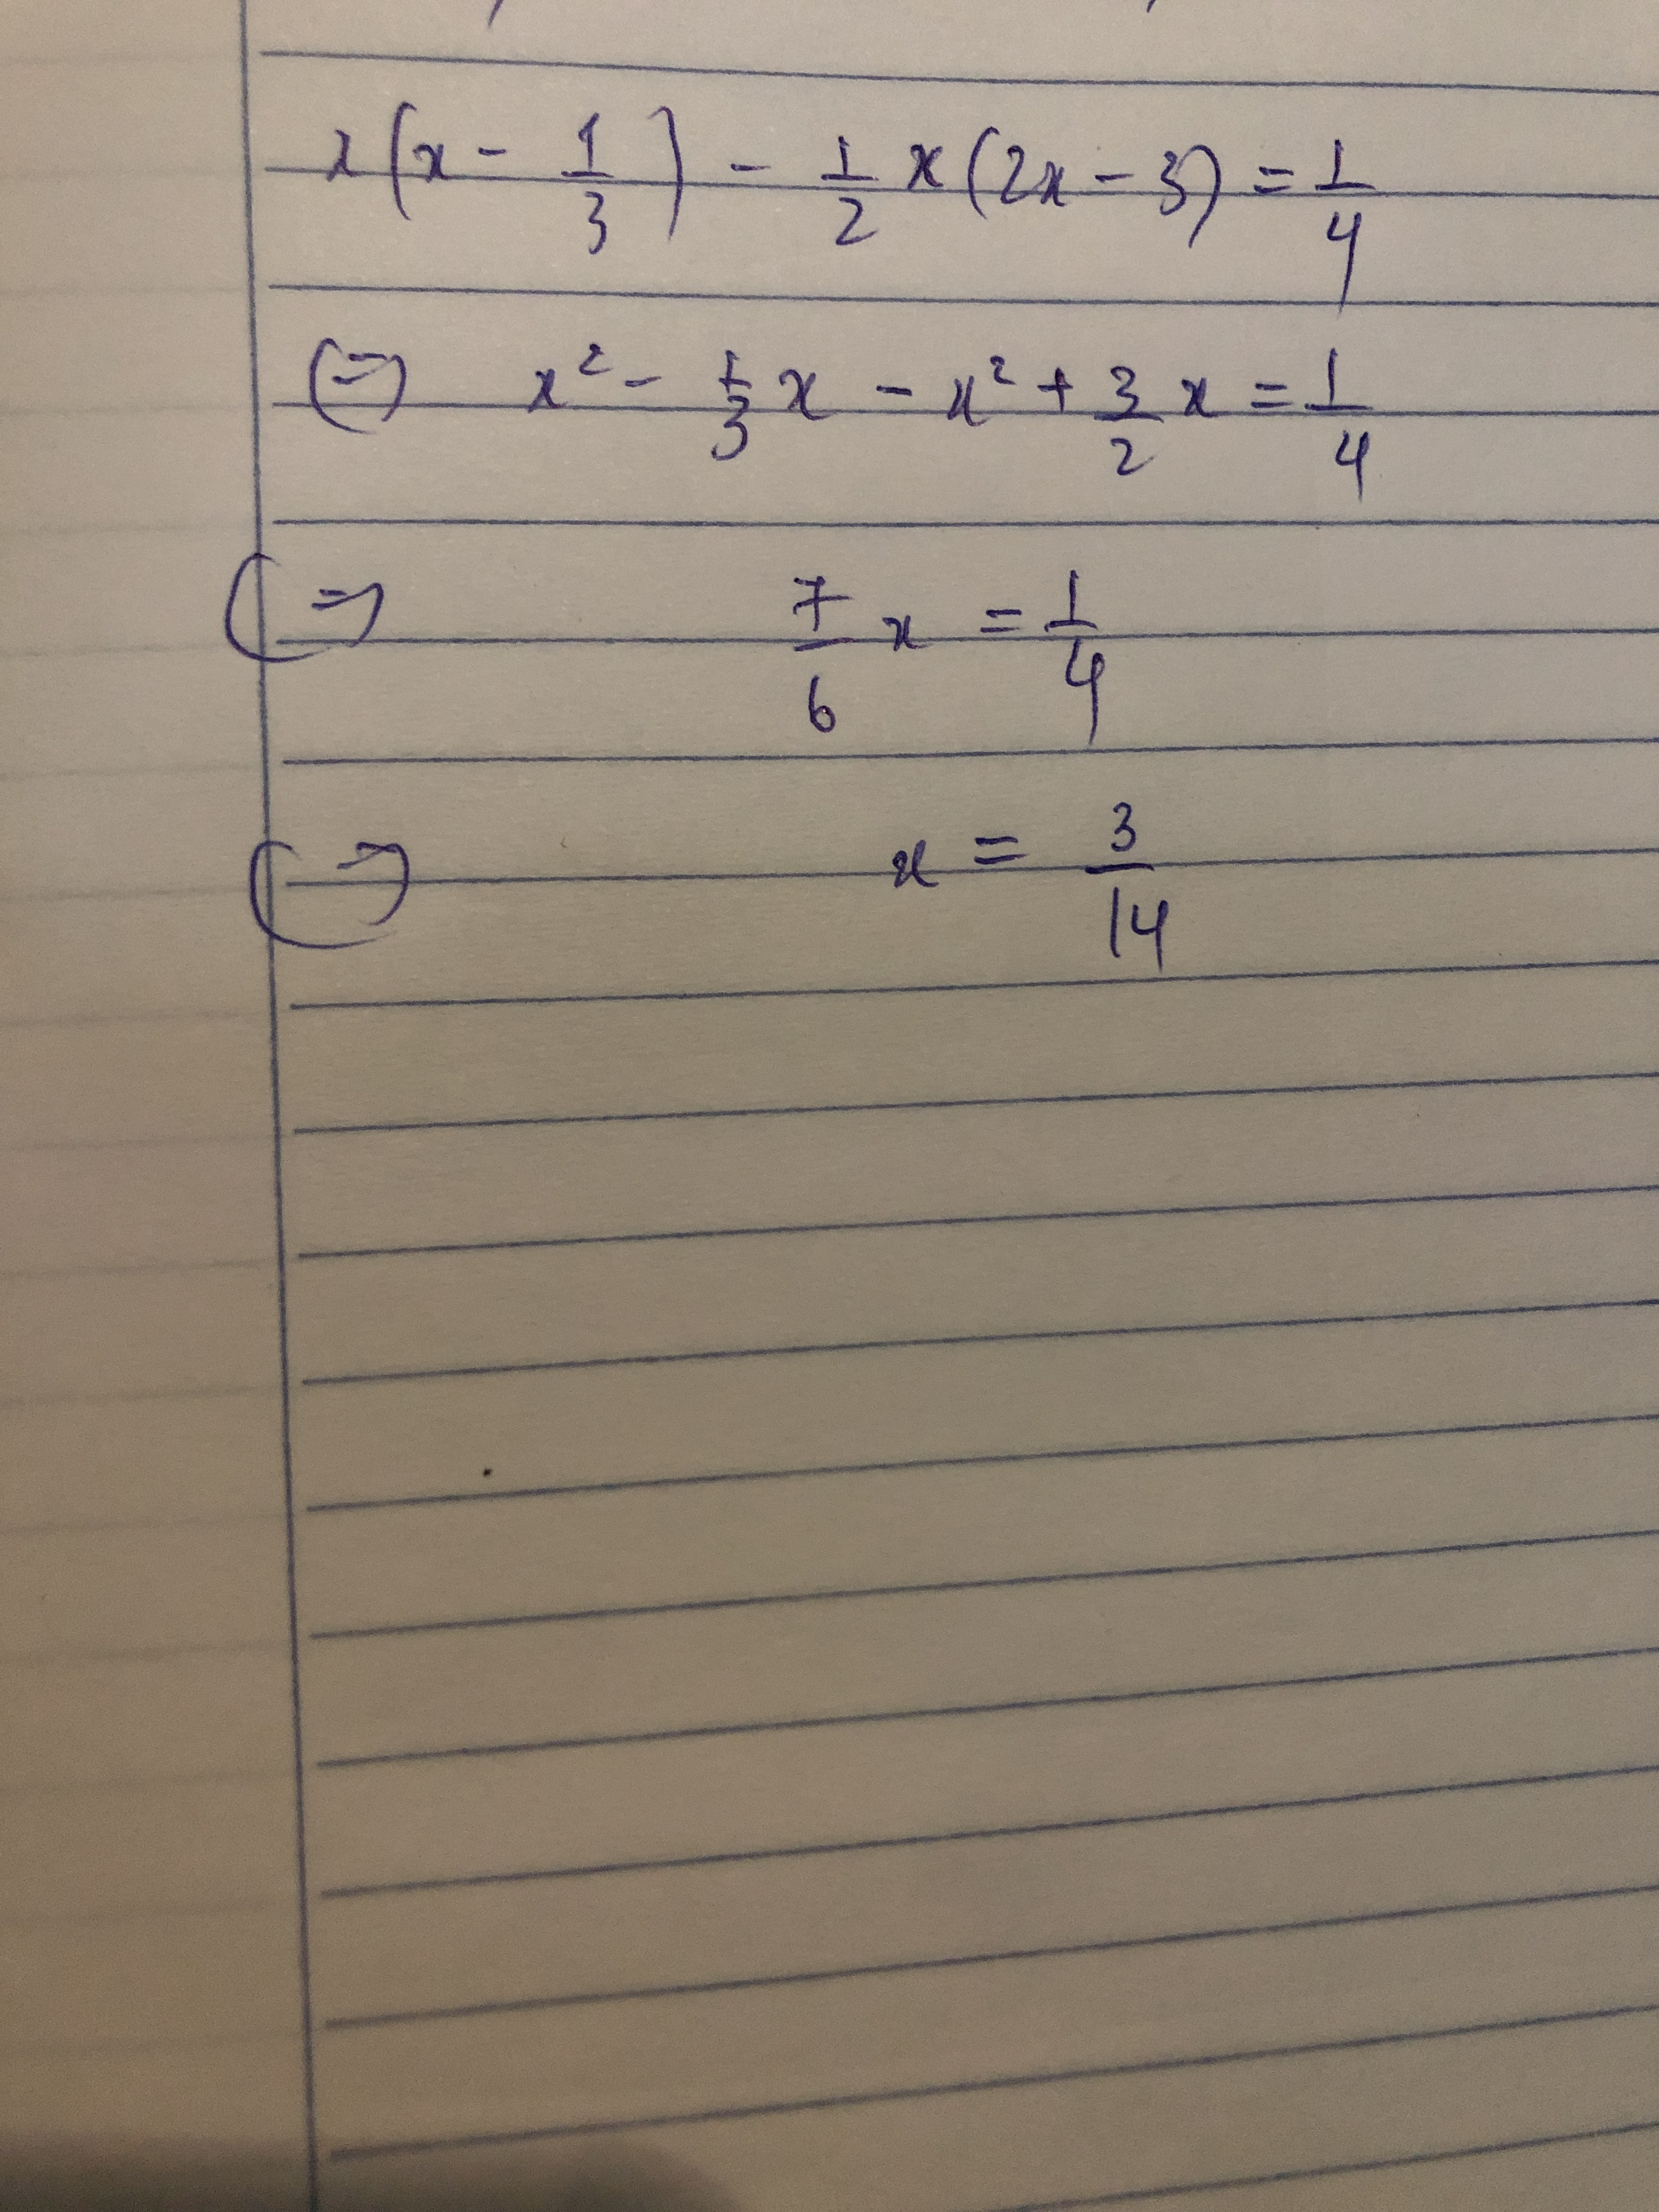 x(x - 1/3) - 1/2 x(2x - 3) = 1/4
(=) x² - 1/3 x - x² + 3/2 x = 1/4
(=) 7/6 x = 1/4
(=) x = 3/14